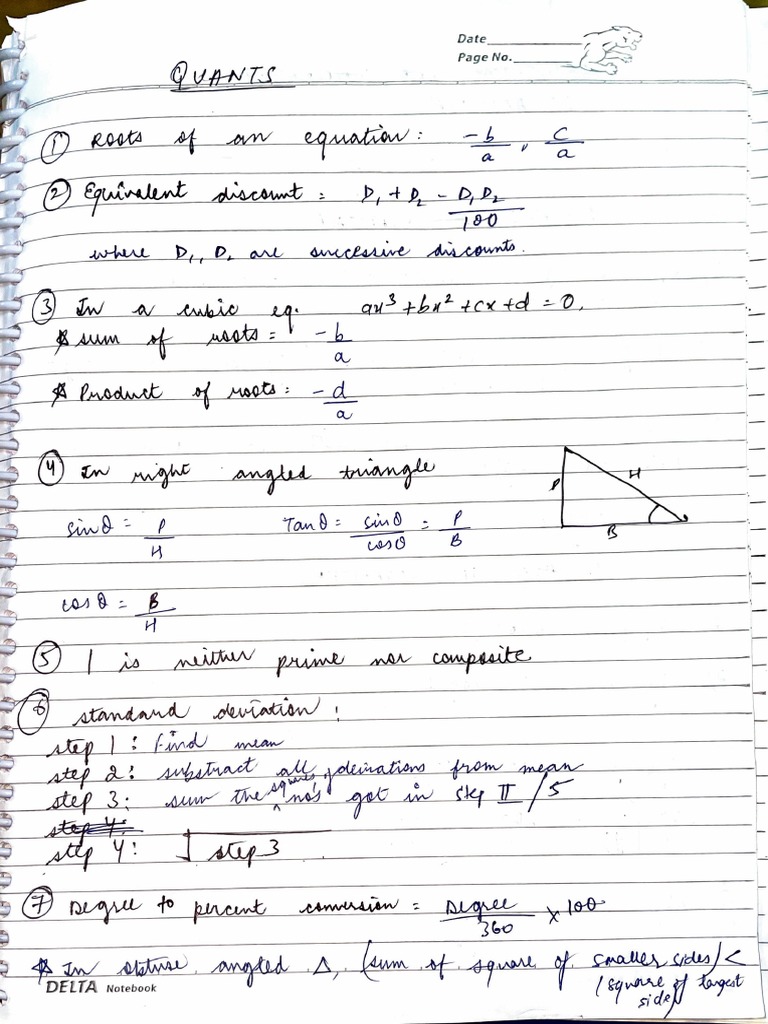 Date
Page No.
QUANTS
① Roots of an equation: -b/a, c/a
② Equivalent discount = D₁ + D₂ - D₁D₂/100
where D₁, D₂ are successive discounts.
③ In a cubic eq. ax³ + bx² + cx + d = 0,
sum of roots = -b/a
Product of roots = -d/a
④ In right angled triangle
P H B
sinθ = P/H Tanθ = sinθ/cosθ = P/B
cosθ = B/H
⑤ 1 is neither prime nor composite
⑥ standard deviation:
step 1: Find mean
step 2: substract all deviations from mean
step 3: sum the squares of no's got in step II / 5
step 4:
step 4: √step 3
⑦ Degree to percent conversion = Degree/360 × 100
In obtuse angled Δ, (sum of square of smaller sides) <
(square of largest
side)
DELTA Notebook